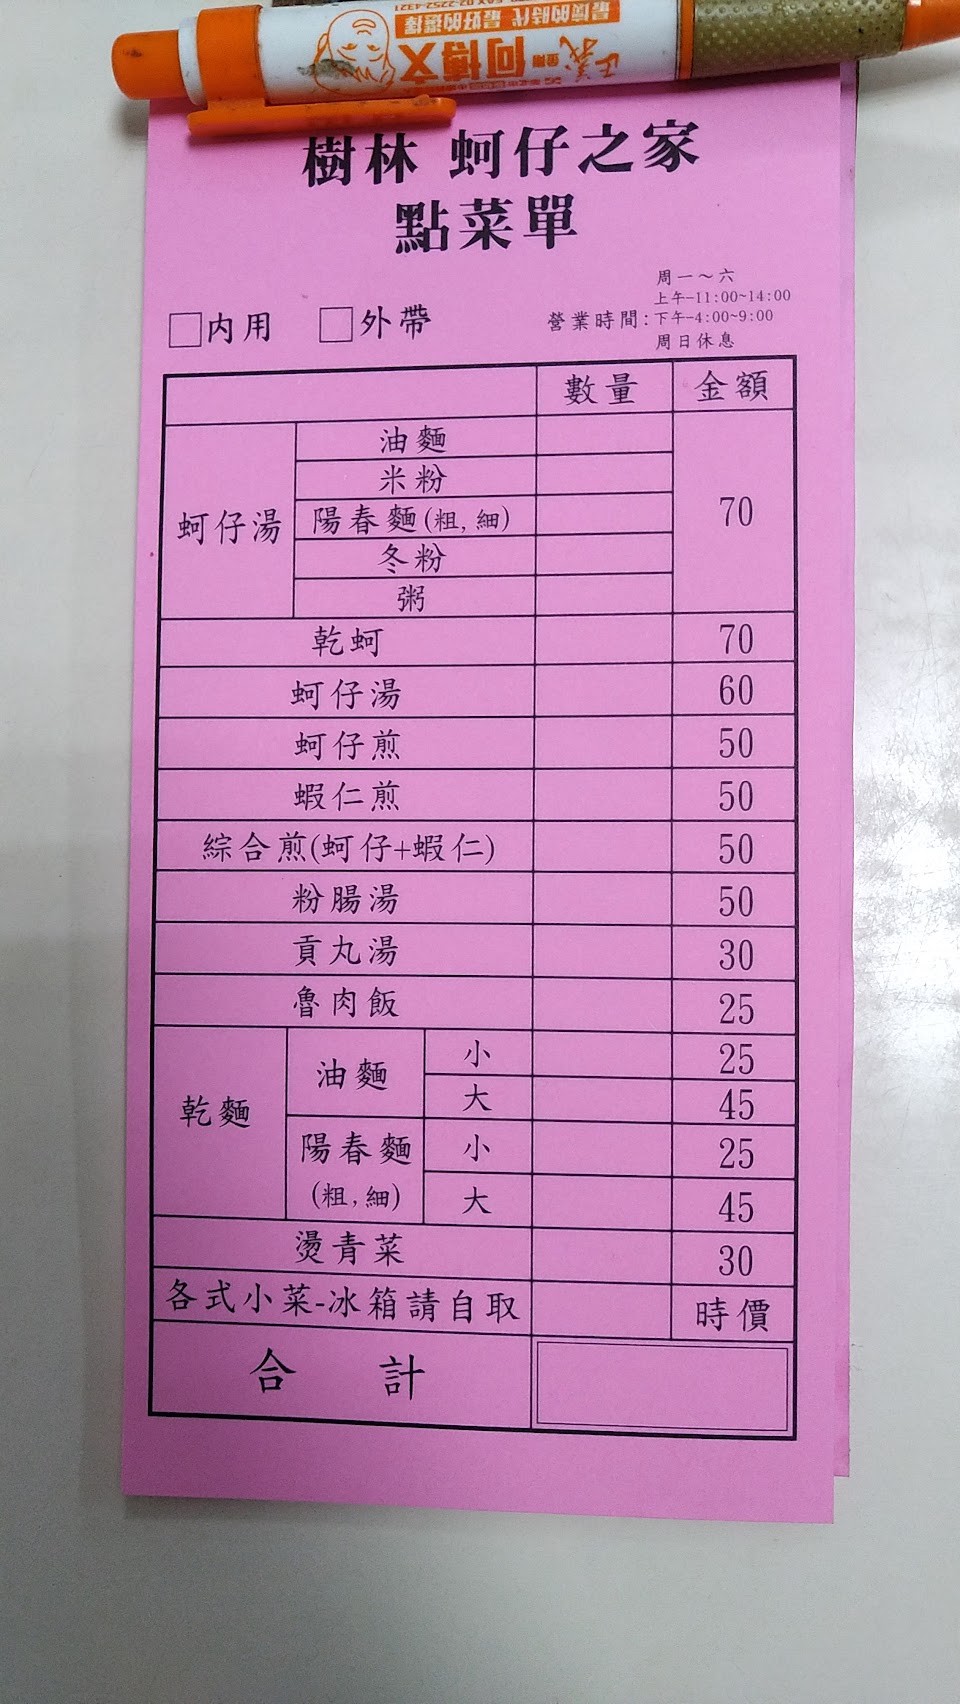 最壞的時代 最好的選擇
正義
金剛
何博文
樹林 蚵仔之家
點菜單
□內用 □外帶
營業時間:
周一～六
上午-11:00~14:00
下午-4:00~9:00
周日休息
數量 金額
蚵仔湯
油麵
米粉
陽春麵(粗,細)
冬粉
粥
70
乾蚵 70
蚵仔湯 60
蚵仔煎 50
蝦仁煎 50
綜合煎(蚵仔+蝦仁) 50
粉腸湯 50
貢丸湯 30
魯肉飯 25
乾麵
油麵
小 25
大 45
陽春麵
(粗,細)
小 25
大 45
燙青菜 30
各式小菜-冰箱請自取 時價
合 計